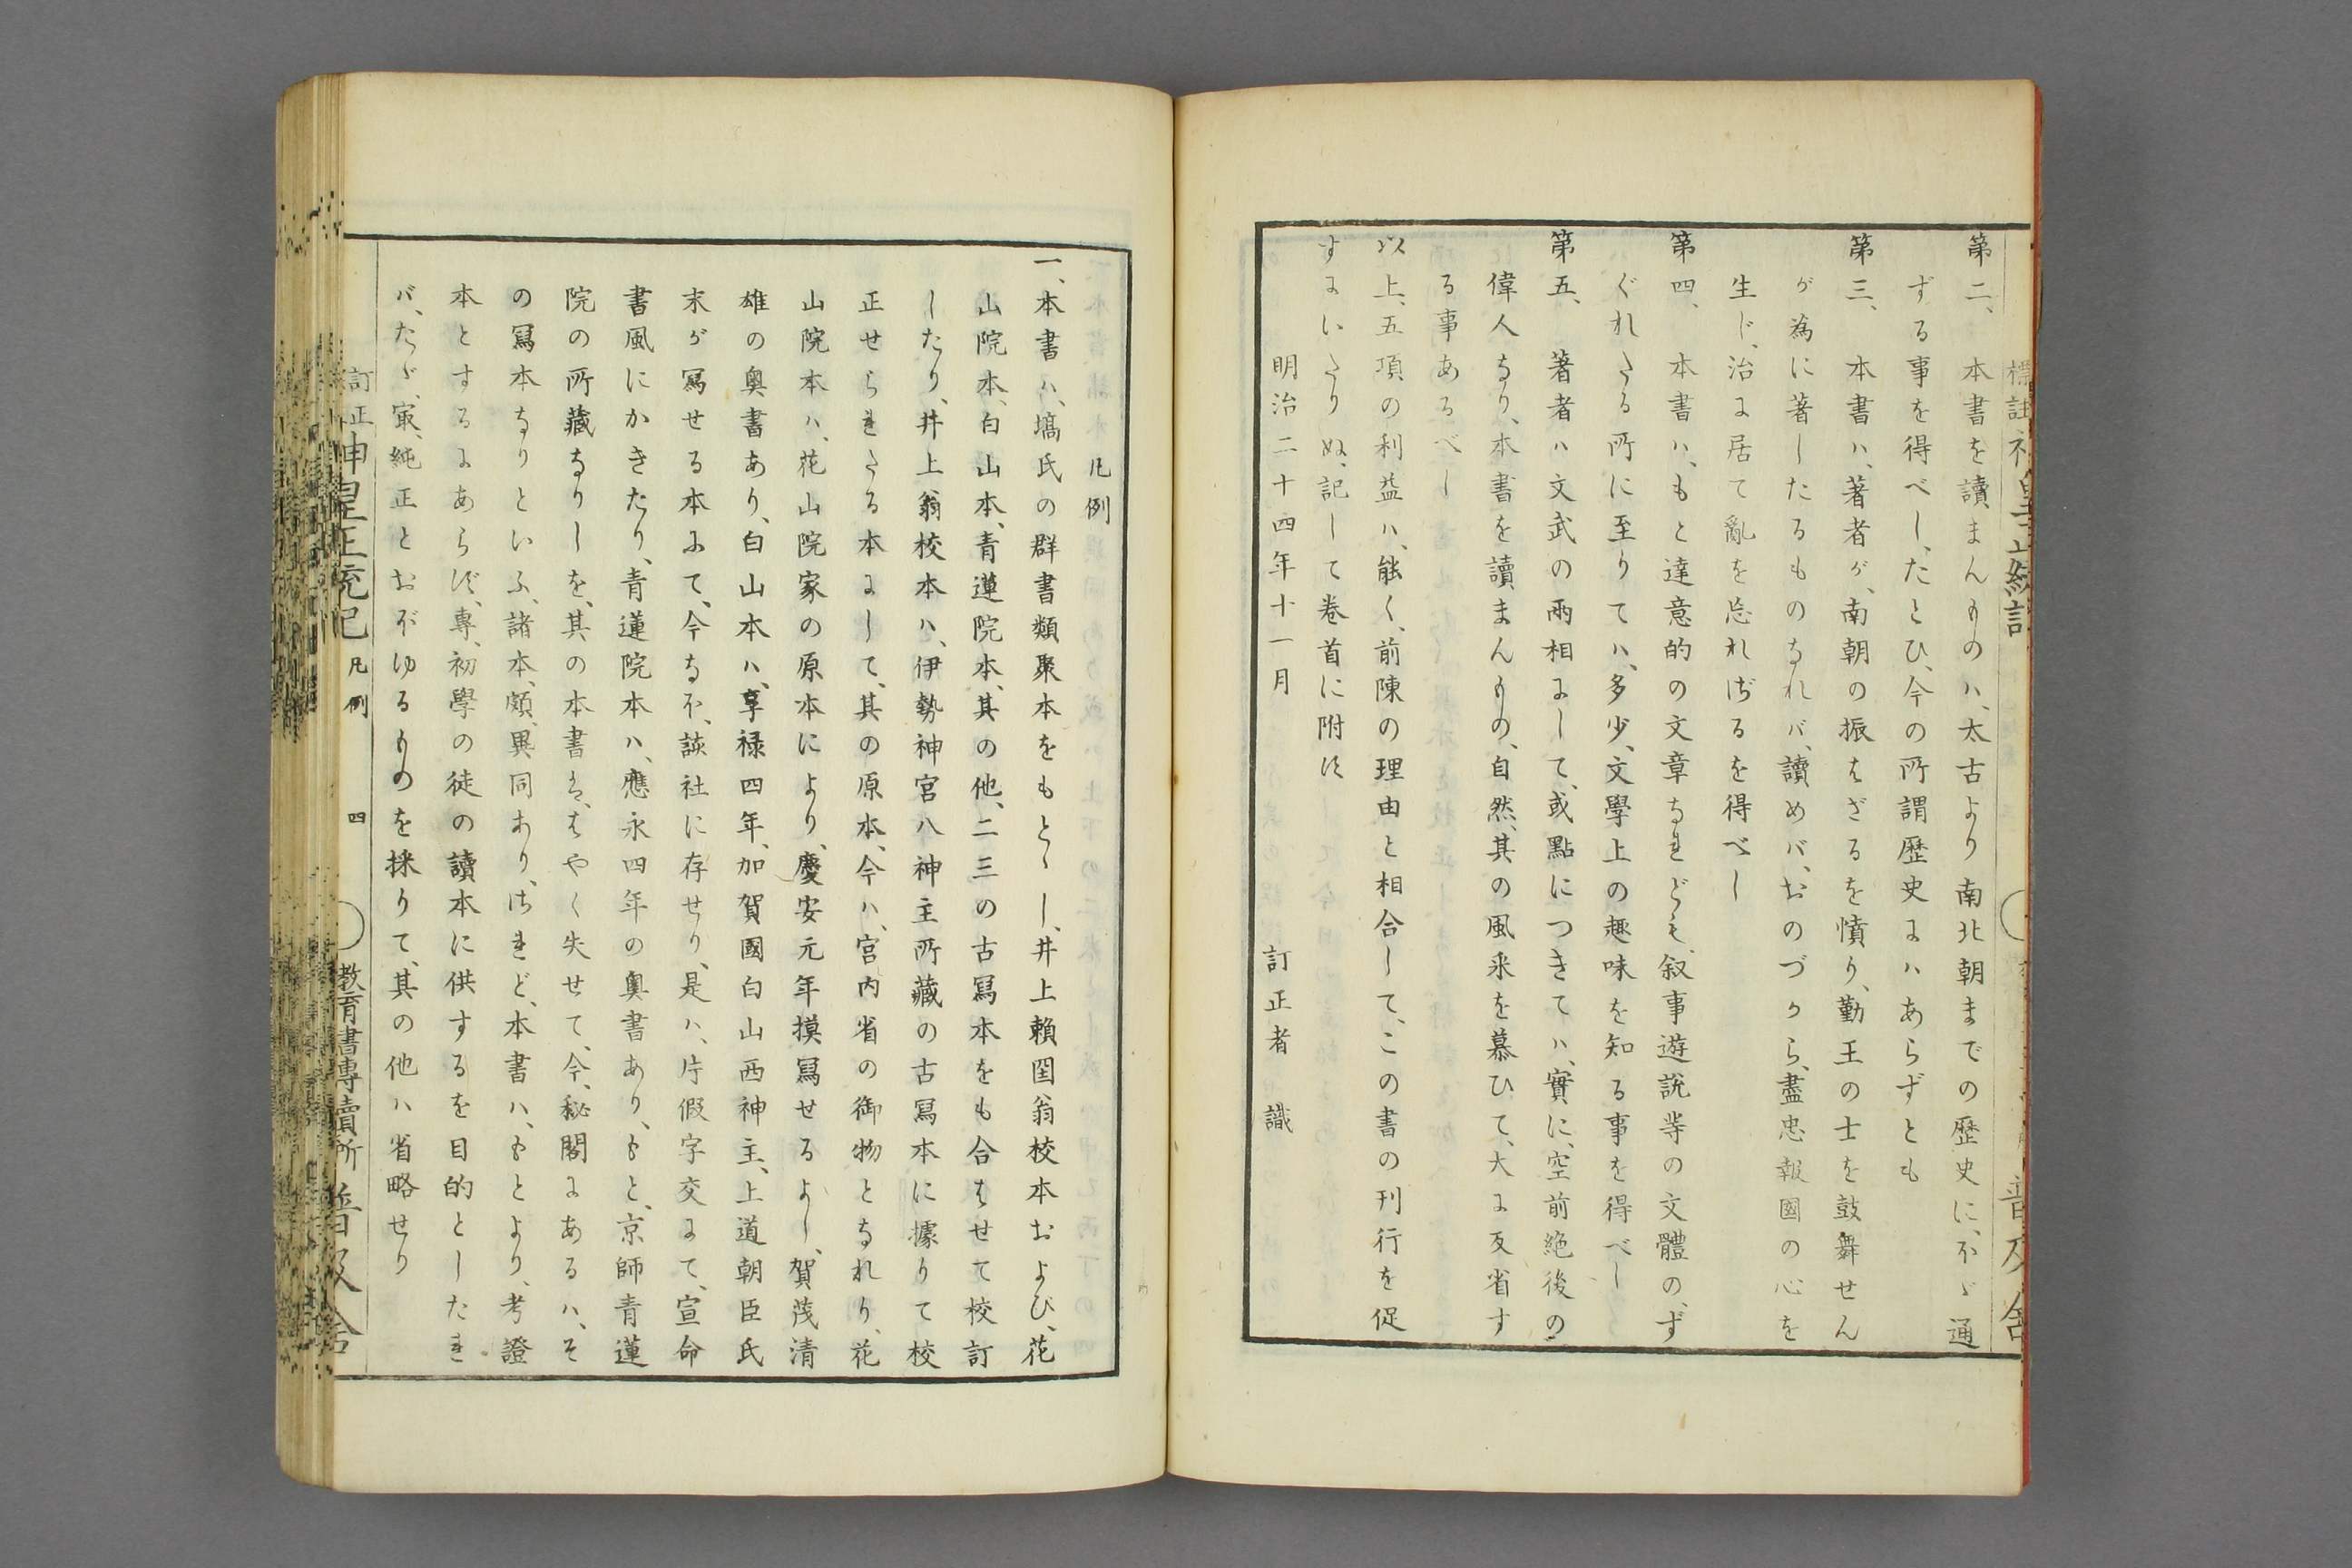 第二、本書を讀まんものハ、太古より南北朝までの歴史に、ホヾ通
ずる事を得べし、たとひ、今の所謂歴史にハあらずとも
第三、本書ハ、著者が、南朝の振はざるを憤り、勤王の士を鼓舞せん
が為に著したるものなれバ、讀めバ、おのづから、盡忠報國の心を
生じ、治に居て亂を忘れざるを得べし
第四、本書ハ、もと達意的の文章なれども、叙事遊說等の文體の、ず
ぐれたる所に至りてハ、多少、文學上の趣味を知る事を得べし
第五、著者ハ文武の兩相にして、或點につきてハ、實に、空前絶後の
偉人なり、本書を讀まんもの、自然、其の風采を慕ひて、大に反省す
る事あるべし
以上、五項の利益ハ、能く、前陳の理由と相合して、この書の刊行を促
すにいたりぬ、記して卷首に附す
明治二十四年十一月 訂正者 識
凡例
一、本書ハ、塙氏の群書類聚本をもとゝし、井上賴囶翁校本および、花
山院本、白山本、青蓮院本、其の他、二三の古寫本をも合はせて校訂
したり、井上翁校本ハ、伊勢神宮八神主所藏の古寫本に據りて校
正せられたる本にして、其の原本、今ハ、宮内省の御物となれり、花
山院本ハ、花山院家の原本により、慶安元年摸寫せるよし、賀茂清
雄の奥書あり、白山本ハ、享禄四年、加賀國白山西神主、上道朝臣氏
末が寫せる本にて、今なほ、該社に存せり、是ハ、片假字交にて、宣命
書風にかきたり、青蓮院本ハ、應永四年の奥書あり、もと、京師青蓮
院の所藏なりしを、其の本書は、はやく失せて、今、秘閣にあるハ、そ
の寫本なりといふ、諸本、頗、異同あり、されど、本書ハ、もとより、考證
本とするにあらず、專、初學の徒の讀本に供するを目的としたれ
バ、たゞ、㝡、純正とおぼゆるものを採りて、其の他ハ省略せり
訂正神皇正統記 凡例 四 教育書專賣所 普及舍